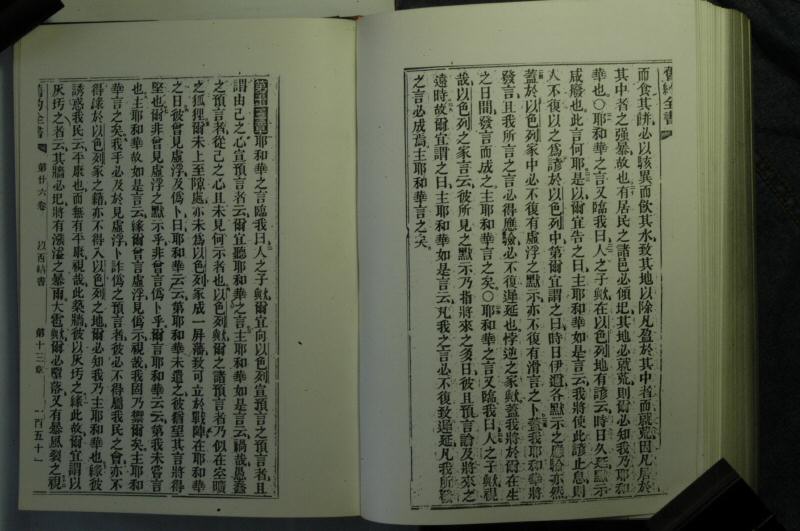 舊約全書
而食其餅必以駭異而飲其水致其地以除凡盈於其中者而就荒因凡居於
其中者之強暴故也有居民之諸邑必傾圮其地必就荒則爾必知我乃耶和
華也〇耶和華之言又臨我曰人之子歟在以色列地有諺云時日久延默示
咸廢也此言何耶是以爾宜告之曰主耶和華如是言云我將使此諺止息則
人不復以之為諺於以色列中第爾宜謂之曰時日伊邇各默示之應驗亦然
蓋於以色列家中必不復有虛浮之默示亦不復有滑言之卜蓋我耶和華將
發言且我所言之言必得應驗必不復遲延也悖逆之家歟蓋我將於爾在生
之日間發言而成之主耶和華言之矣〇耶和華之言又臨我曰人之子歟視
哉以色列之家言云彼所見之默示乃指將來之多日彼且預言論及將來之
遠時故爾宜謂之曰主耶和華如是言云凡我之言必不復致遲延凡我所
之言必成焉主耶和華言之矣
耶和華之言臨我曰人之子歟爾宜向以色列宣預言之預言者且
謂由己之心宣預言者云爾宜聽耶和華之言主耶和華如是言云禍哉愚蠢
之預言者從己之心且未見何示者也以色列歟爾之諸預言者乃似在空曠
之狐狸爾未上至隙處亦未為以色列家成一屏藩致可立於戰陣在耶和華
之日彼曾見虛浮及偽卜曰耶和華云云第耶和華未遣之彼猶望其言將得
堅也爾非曾見虛浮之默示乎非曾言偽卜乎爾言耶和華云云第我未嘗言
也主耶和華故如是言云緣爾曾言虛浮見偽示視哉我固乃禦爾矣主耶和
華言之矣我手必及於見虛浮卜詐偽之預言者彼必不得屬我民之會亦不
得錄於以色列家之籍亦不得入以色列之地爾必知我乃主耶和華也緣彼
誘惑我民云平康也而無有平康視哉此築牆彼以灰圬之緣此故爾宜謂以
灰圬之者云其牆必圮將有漲溢之暴雨大雹歟爾必墮落又有暴風裂之視
舊約全書 第廿六卷 以西結書 第十三章 一百五十